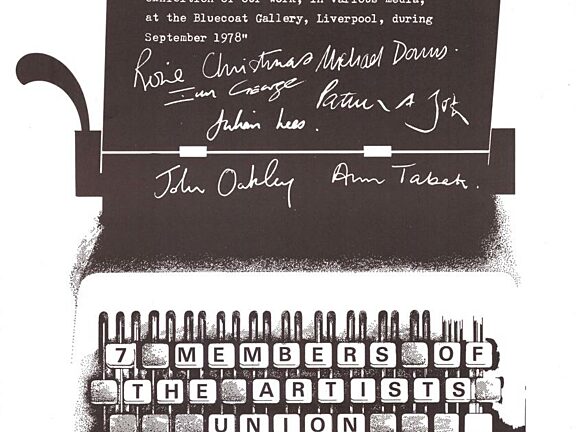 exhibition of our work, in various media,
at the Bluecoat Gallery, Liverpool, during
September 1978"
Rosie Christmas Michael Downs.
Ian George
A
Julian Lees.
John Oakley Ann
7 MEMBERS OF
THE ARTISTS
UNION